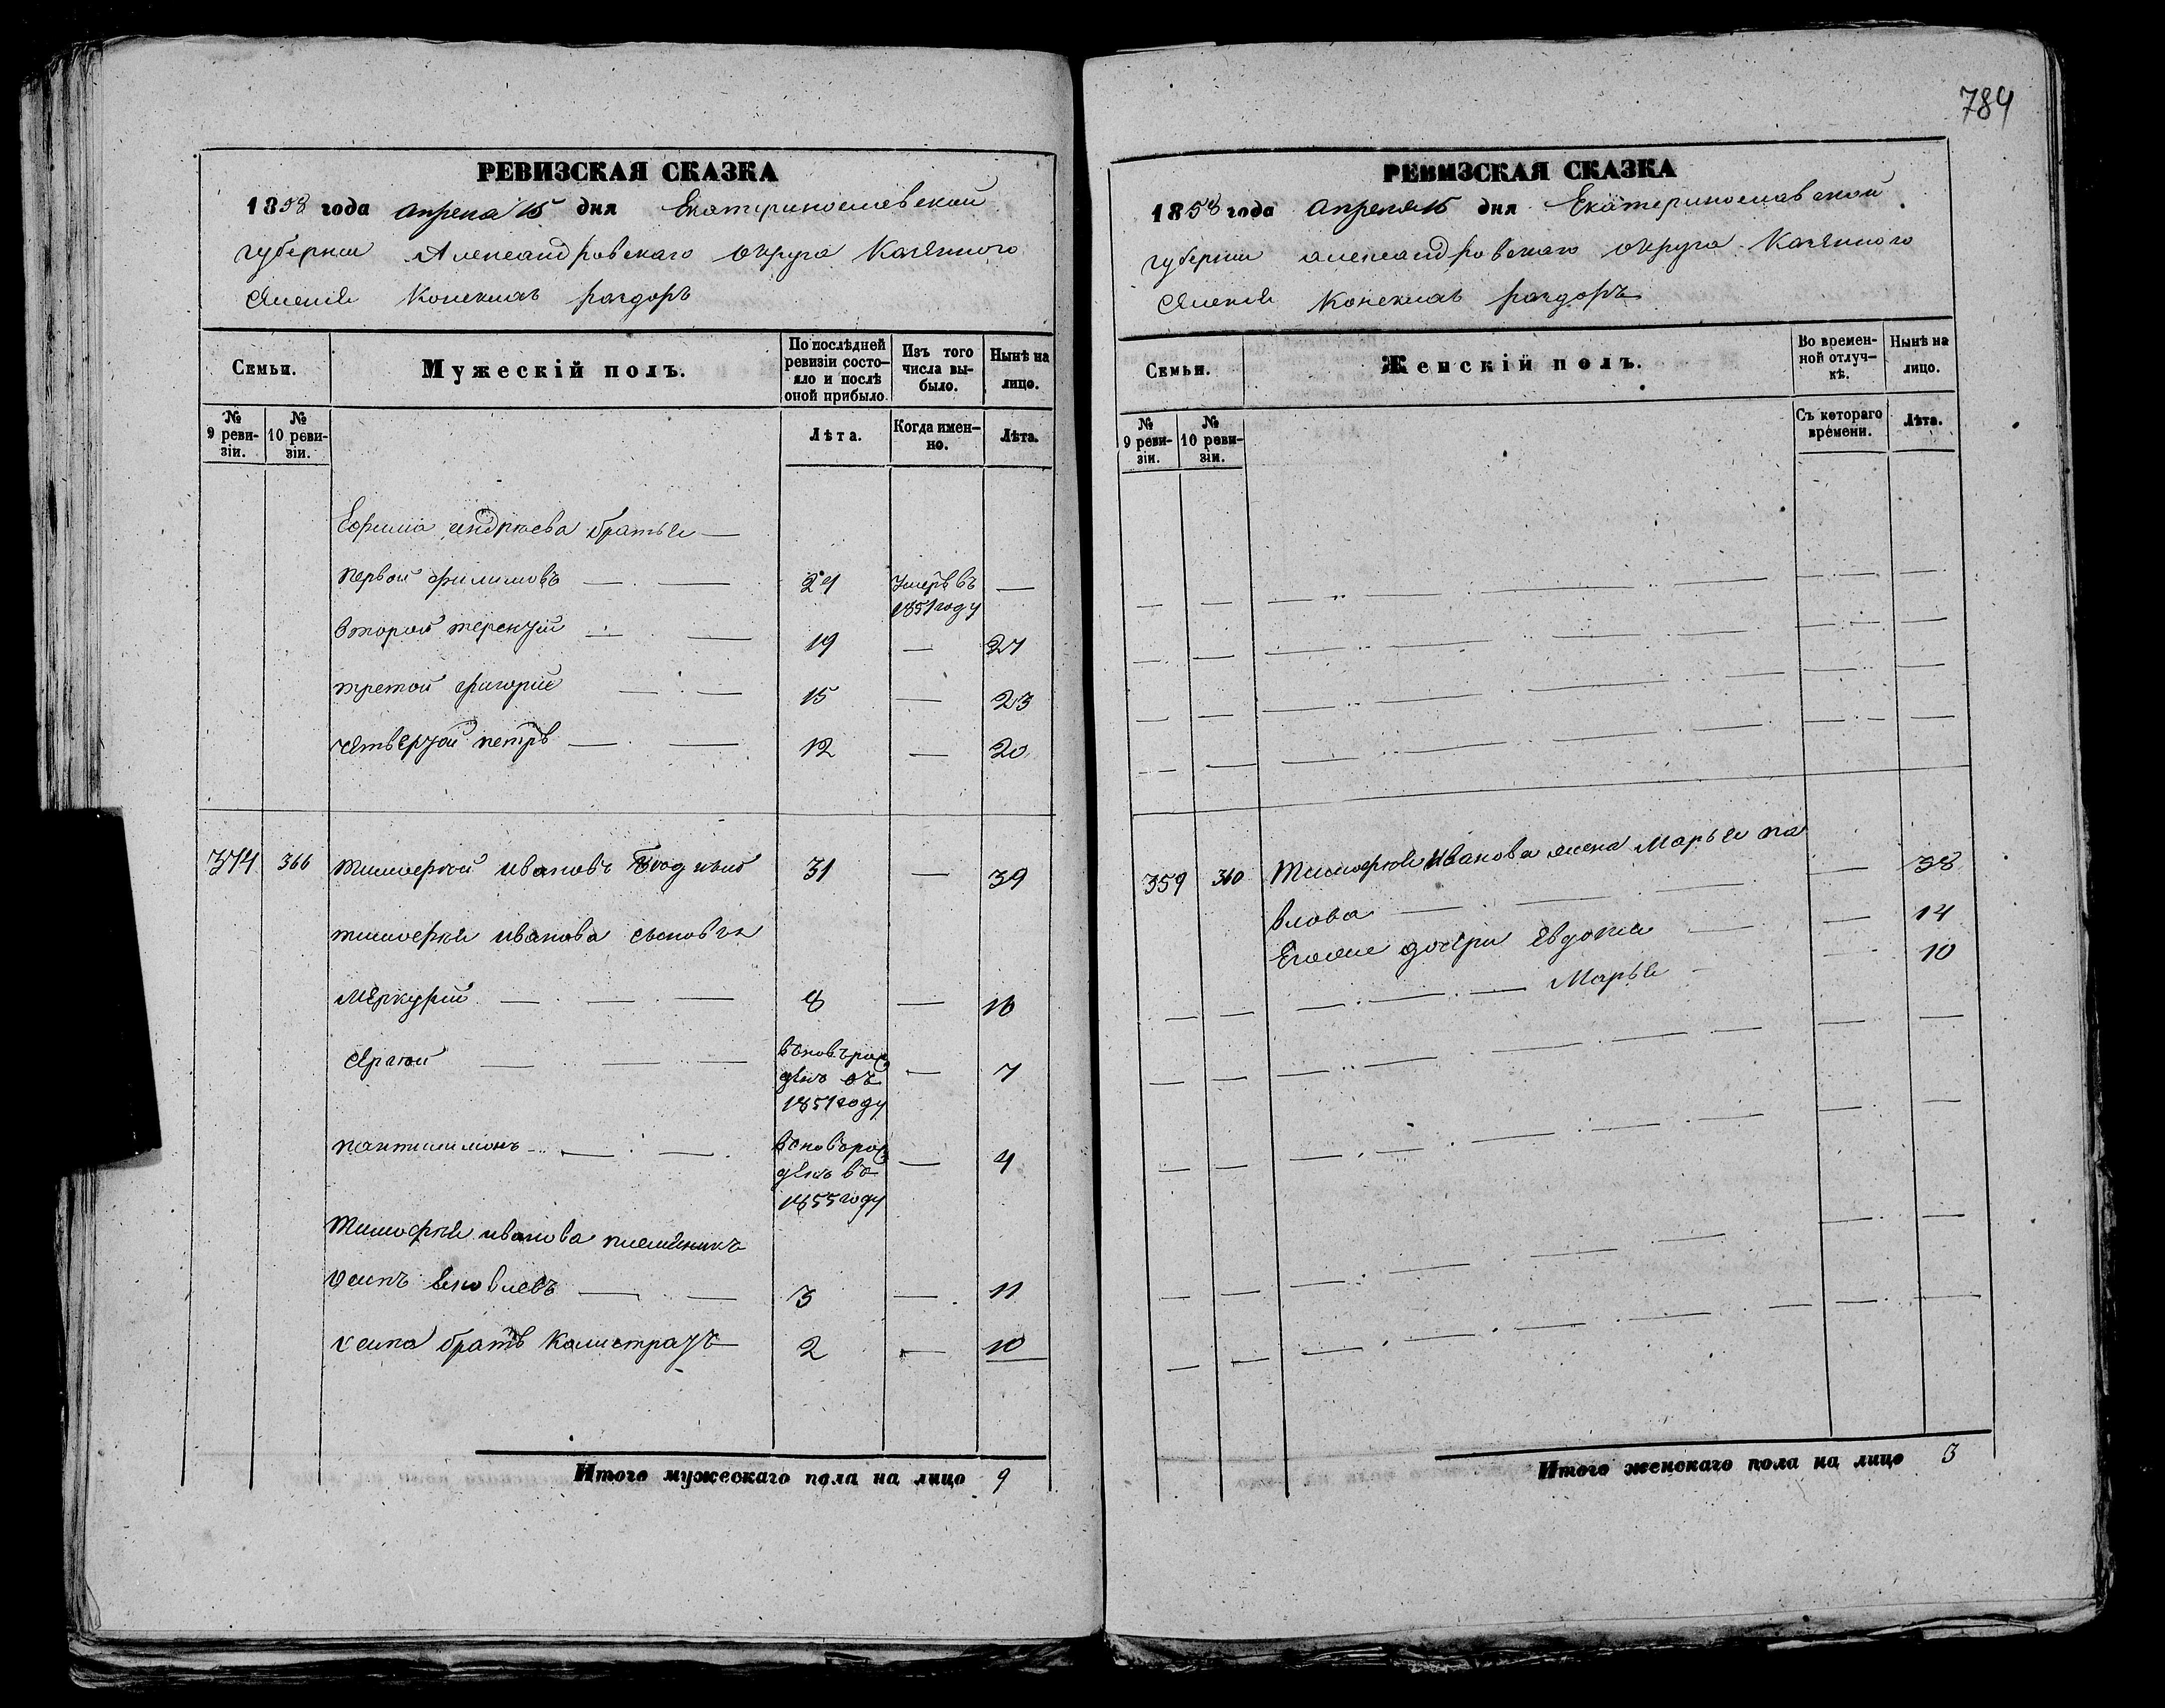 784
РЕВИЗСКАЯ СКАЗКА
1858 года апреля 15 дня Екатеринославской
губернии Александровскаго округа Казенного
селенія Конскихъ раздоръ
Семьи.
Мужескій полъ.
По послѣдней ревизіи состо-
яло и послѣ
оной прибыло.
Изъ того
числа вы-
было.
Нынѣ на
лицо.
№
9 реви-
зіи.
№
10 реви-
зіи.
Лѣта.
Когда имен-
но.
Лѣта.
Ефима андреева братья —
первой филимовъ — — 27 Умеръ въ —
1851 году
второй терентій — — 19 — 27
третой григорій — — 15 — 23
четвертой петръ — — 12 — 20
374 366 тимофеей ивановъ 31 — 39
тимофея иванова сыновья
меркурій — — — 8 — 16
сергей — — — вновърож
денъ въ — 7
1851 году
пантилимонъ — — вновърож
денъ въ — 4
1855 году
Тимофея иванова племяникъ
осипъ яковлевъ — — 3 — 11
осипа братъ калистратъ 2 — 10
Итого мужескаго пола на лицо 9
РЕВИЗСКАЯ СКАЗКА
1858 года апреля 15 дня Екатеринославской
губернии александровскаго округа Казенного
селенія Конскихъ раздоръ
Семьи.
Женскій полъ.
Во времен-
ной отлуч-
кѣ.
Нынѣ на
лицо.
№
9 реви-
зіи.
№
10 реви-
зіи.
Съ котораго
времени.
Лѣта.
359 360 Тимофея Иванова жена Марья па
влова — — — — 38
Егоже дочери Евдокия — — 14
— — — Марья — — 10
Итого женскаго пола на лицо 3